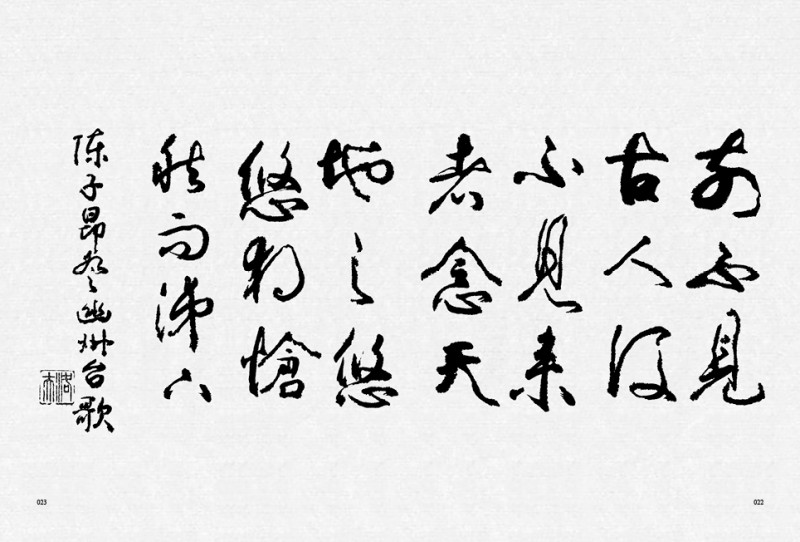 前不見
古人後
不見来
者念天
地之悠
悠独愴
然而涕下
陈子昂登幽州台歌
022
023